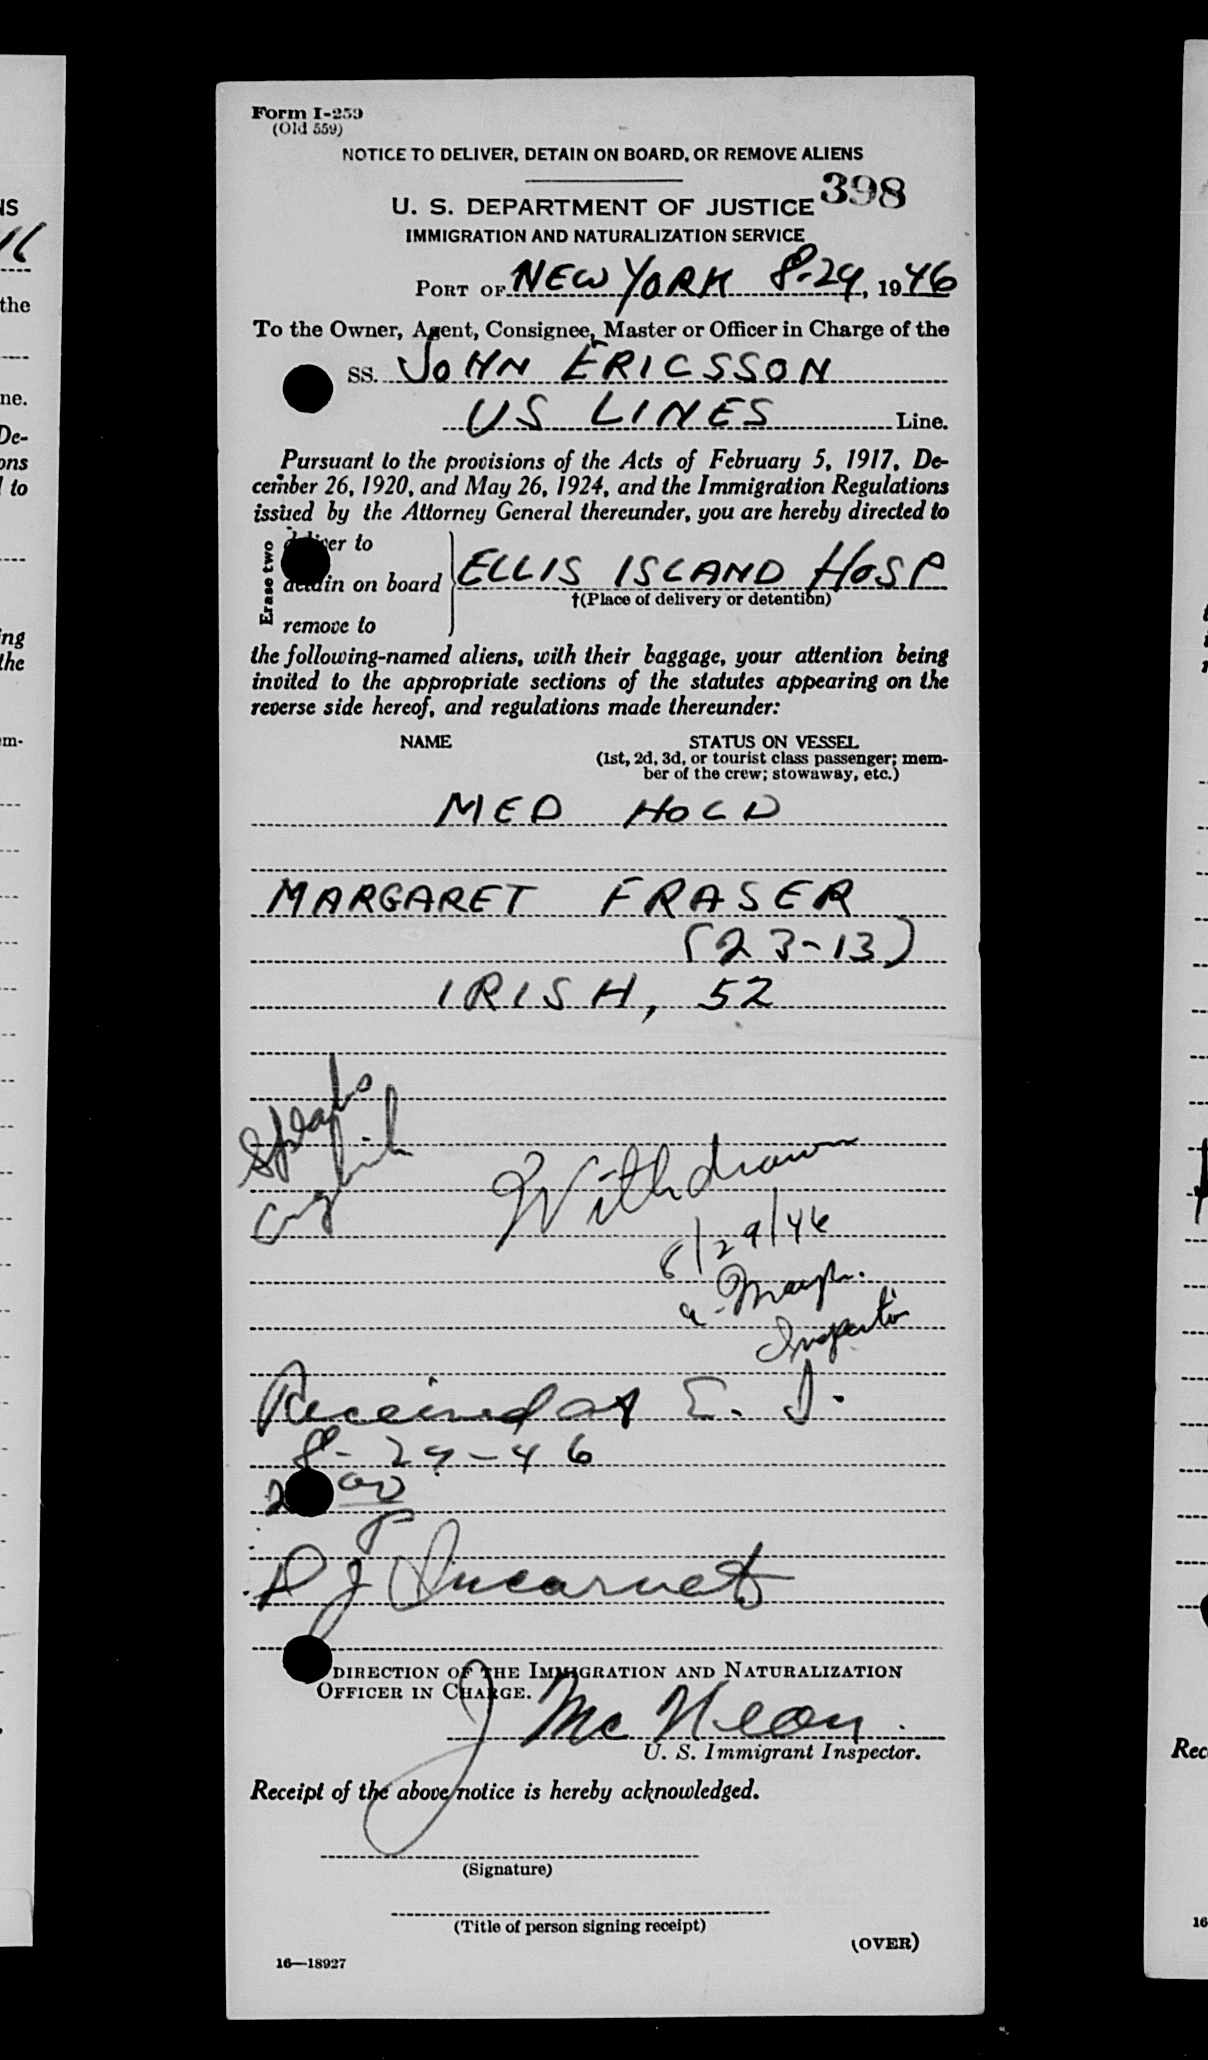 Form I-259
(Old 559)
NOTICE TO DELIVER, DETAIN ON BOARD, OR REMOVE ALIENS
398
U. S. DEPARTMENT OF JUSTICE
IMMIGRATION AND NATURALIZATION SERVICE
PORT OF NEW YORK 8-29, 1946
To the Owner, Agent, Consignee, Master or Officer in Charge of the
SS. JOHN ERICSSON
US LINES Line.
Pursuant to the provisions of the Acts of February 5, 1917, De-
cember 26, 1920, and May 26, 1924, and the Immigration Regulations
issued by the Attorney General thereunder, you are hereby directed to
Erase two
deliver to
detain on board
remove to
ELLIS ISLAND HOSP
†(Place of delivery or detention)
the following-named aliens, with their baggage, your attention being
invited to the appropriate sections of the statutes appearing on the
reverse side hereof, and regulations made thereunder:
NAME STATUS ON VESSEL
(1st, 2d, 3d, or tourist class passenger; mem-
ber of the crew; stowaway, etc.)
MED HOLD
MARGARET FRASER
(23-13)
IRISH, 52
Speaks
English
Withdrawn
8/29/46
Inspector
Received at E. I.
8-29-46
DIRECTION OF THE IMMIGRATION AND NATURALIZATION
OFFICER IN CHARGE.
J Mc
U. S. Immigrant Inspector.
Receipt of the above notice is hereby acknowledged.
(Signature)
(Title of person signing receipt)
(OVER)
16—18927